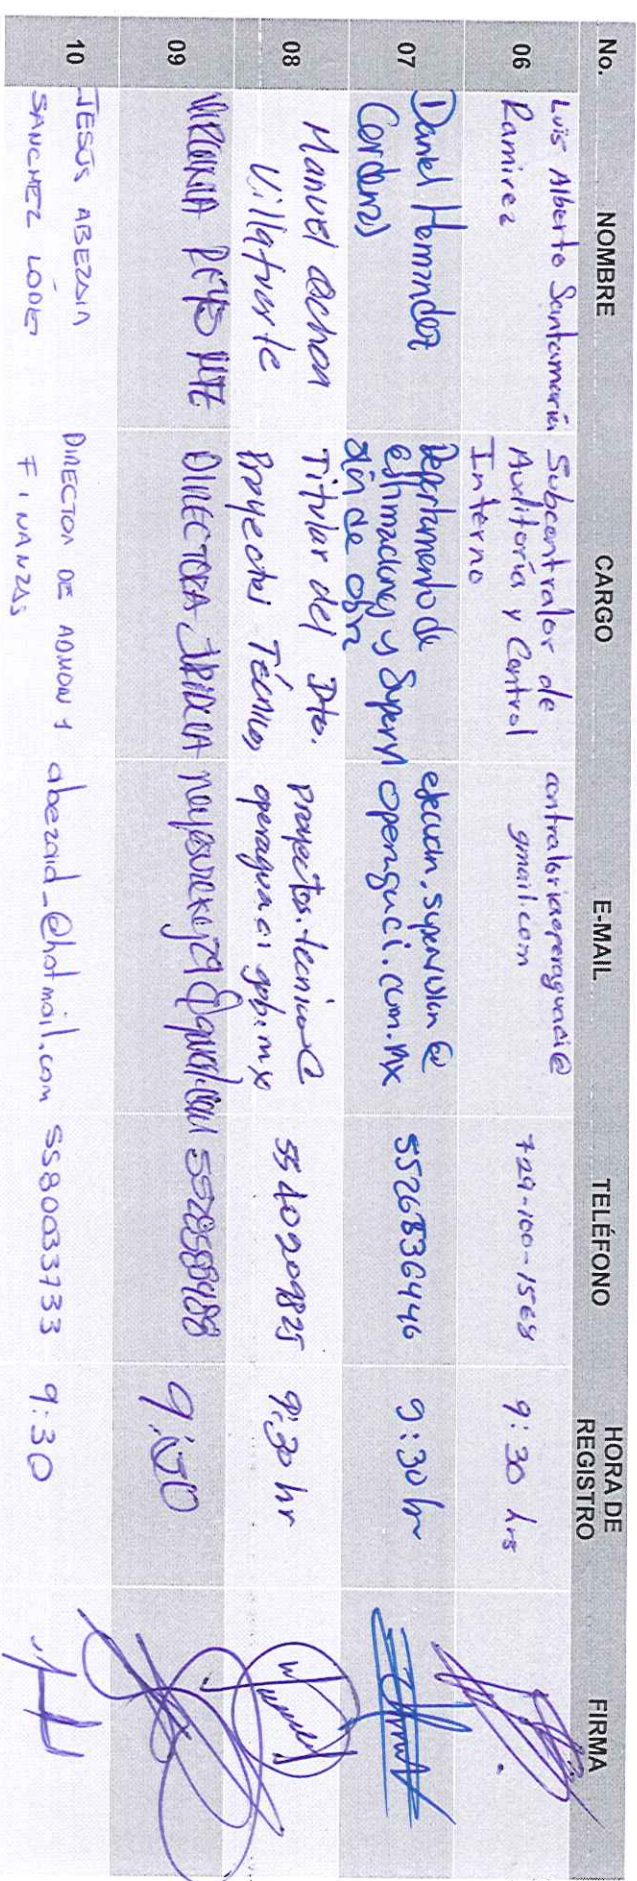 No. NOMBRE CARGO E-MAIL TELÉFONO HORA DE REGISTRO FIRMA
06 Luis Alberto Santamaría Ramirez Subcontralor de Auditoría y Control Interno contraloriaoperaguaci@gmail.com 729-100-1568 9:30 hrs
07 Daniel Hernández Cardenas Departamento de estimaciones y Supervisión de obra operaguaci.com.mx 5526836446 9:30 hr
08 Manuel Ochoa Villafuerte Titular del Dto. Proyectos Técnicos 5540209825 9:30 hr
09 VIRGINIA DIRECTORA JURIDICA 9:30
10 JESÚS ABEZAIN SANCHEZ LÓPEZ DIRECTOR DE ADMON Y FINANZAS abezaid_@hotmail.com 5580033733 9:30